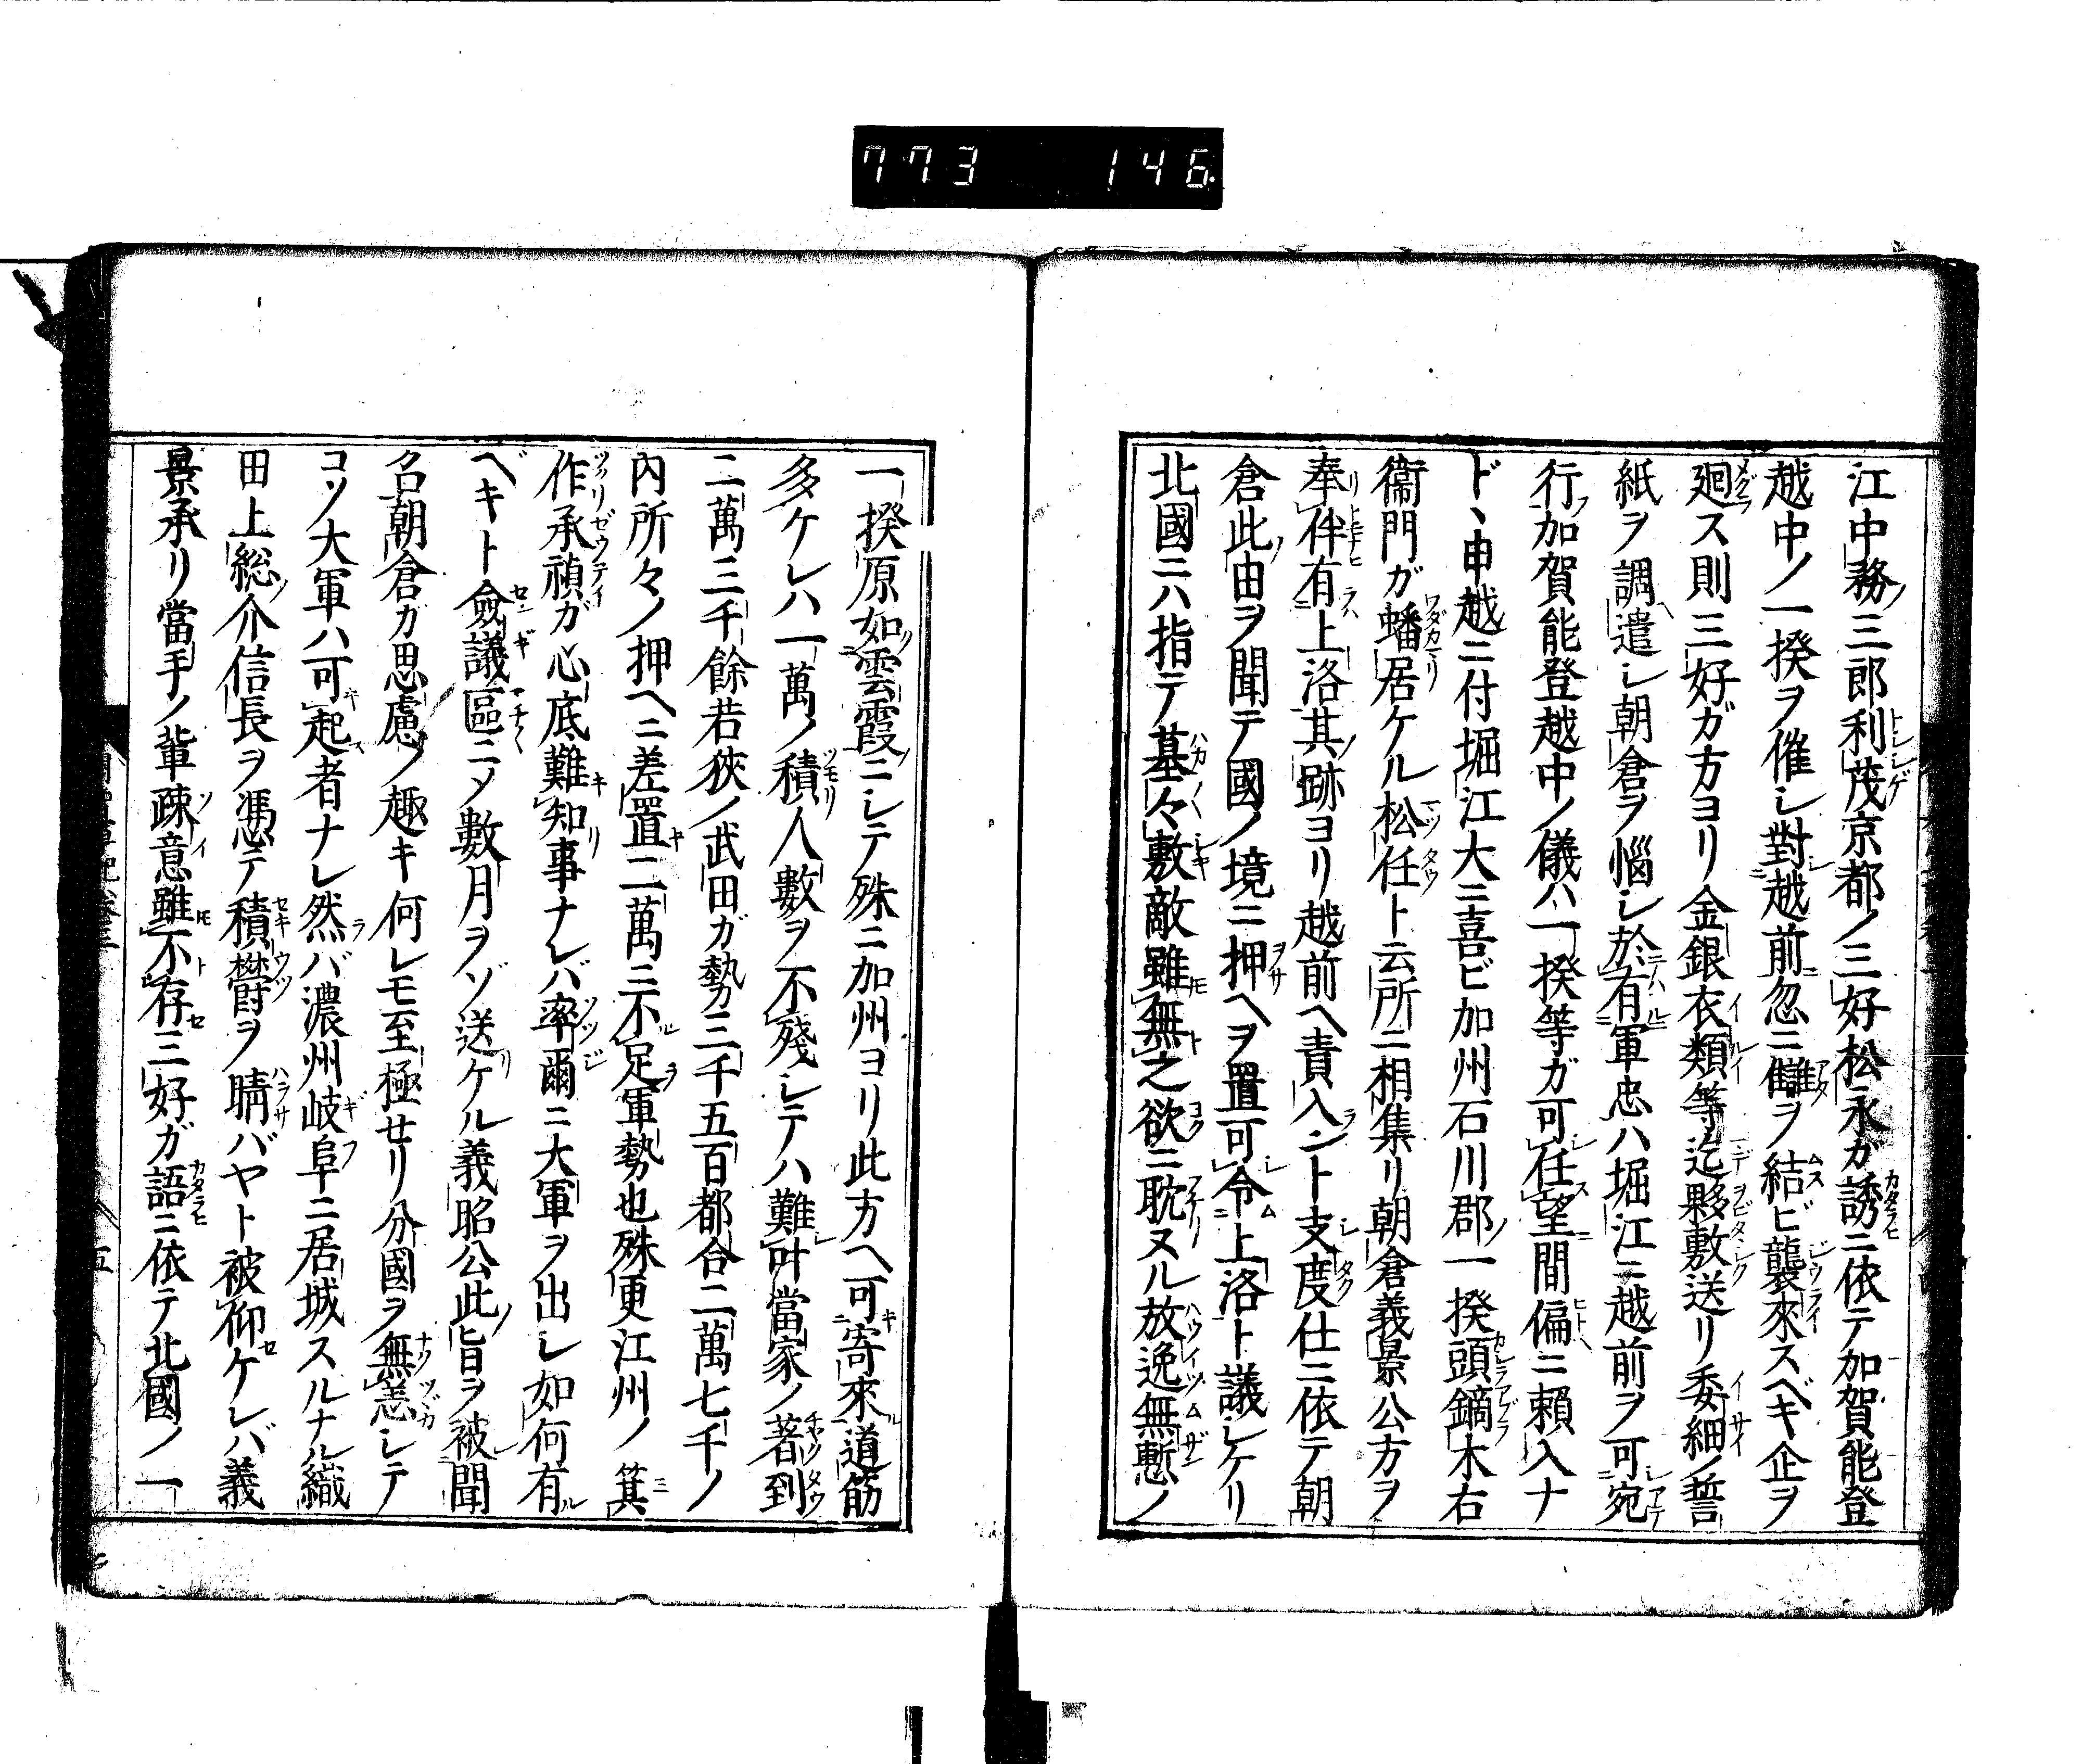 773 146
江中務三郎利茂京都ノ三好松永ガ誘ニ依テ加賀能登
越中ノ一揆ヲ催シ對越前忽ニ讎ヲ結ビ襲來スベキ企ヲ
廻ス則三好ガ方ヨリ金銀衣類等迄夥敷送リ委細ノ誓
紙ヲ調遣シ朝倉ヲ惱シ於有軍忠ハ堀江ニ越前ヲ可宛
行加賀能登越中ノ儀ハ一揆等ガ可任望間偏ニ賴入ナ
ドヽ申越ニ付堀江大ニ喜ビ加州石川郡一揆頭鏑木右
衞門ガ蟠居ケル松任ト云所ニ相集リ朝倉義景公方ヲ
奉伴有上洛其跡ヨリ越前ヘ責入ント支度仕ニ依テ朝
倉此由ヲ聞テ國ノ境ニ押ヘヲ置可令上洛ト議シケリ
北國ニハ指テ墓々敷敵雖無之欲ニ耽ヌル放逸無慙ノ
一揆原如雲霞ニシテ殊ニ加州ヨリ此方ヘ可寄來道筋
多ケレハ一萬ノ積人數ヲ不殘シテハ難叶當家ノ著到
二萬三千餘若狹ノ武田ガ勢三千五百都合二萬七千ノ
內所々ノ押ヘニ差置二萬ニ不足軍勢也殊更江州ノ箕
作承禎ガ心底難知事ナレバ率爾ニ大軍ヲ出シ如何有
ベキト僉議區ニメ數月ヲゾ送ケル義昭公此旨ヲ被聞
召朝倉ガ思慮ノ趣キ何レモ至極せリ分國ヲ無恙シテ
コソ大軍ハ可起者ナレ然バ濃州岐阜ニ居城スルナル織
田上総介信長ヲ馮テ積欝ヲ晴バヤト被仰ケレバ義
景承リ當手ノ輩疎意雖不存三好ガ語ニ依テ北國ノ一